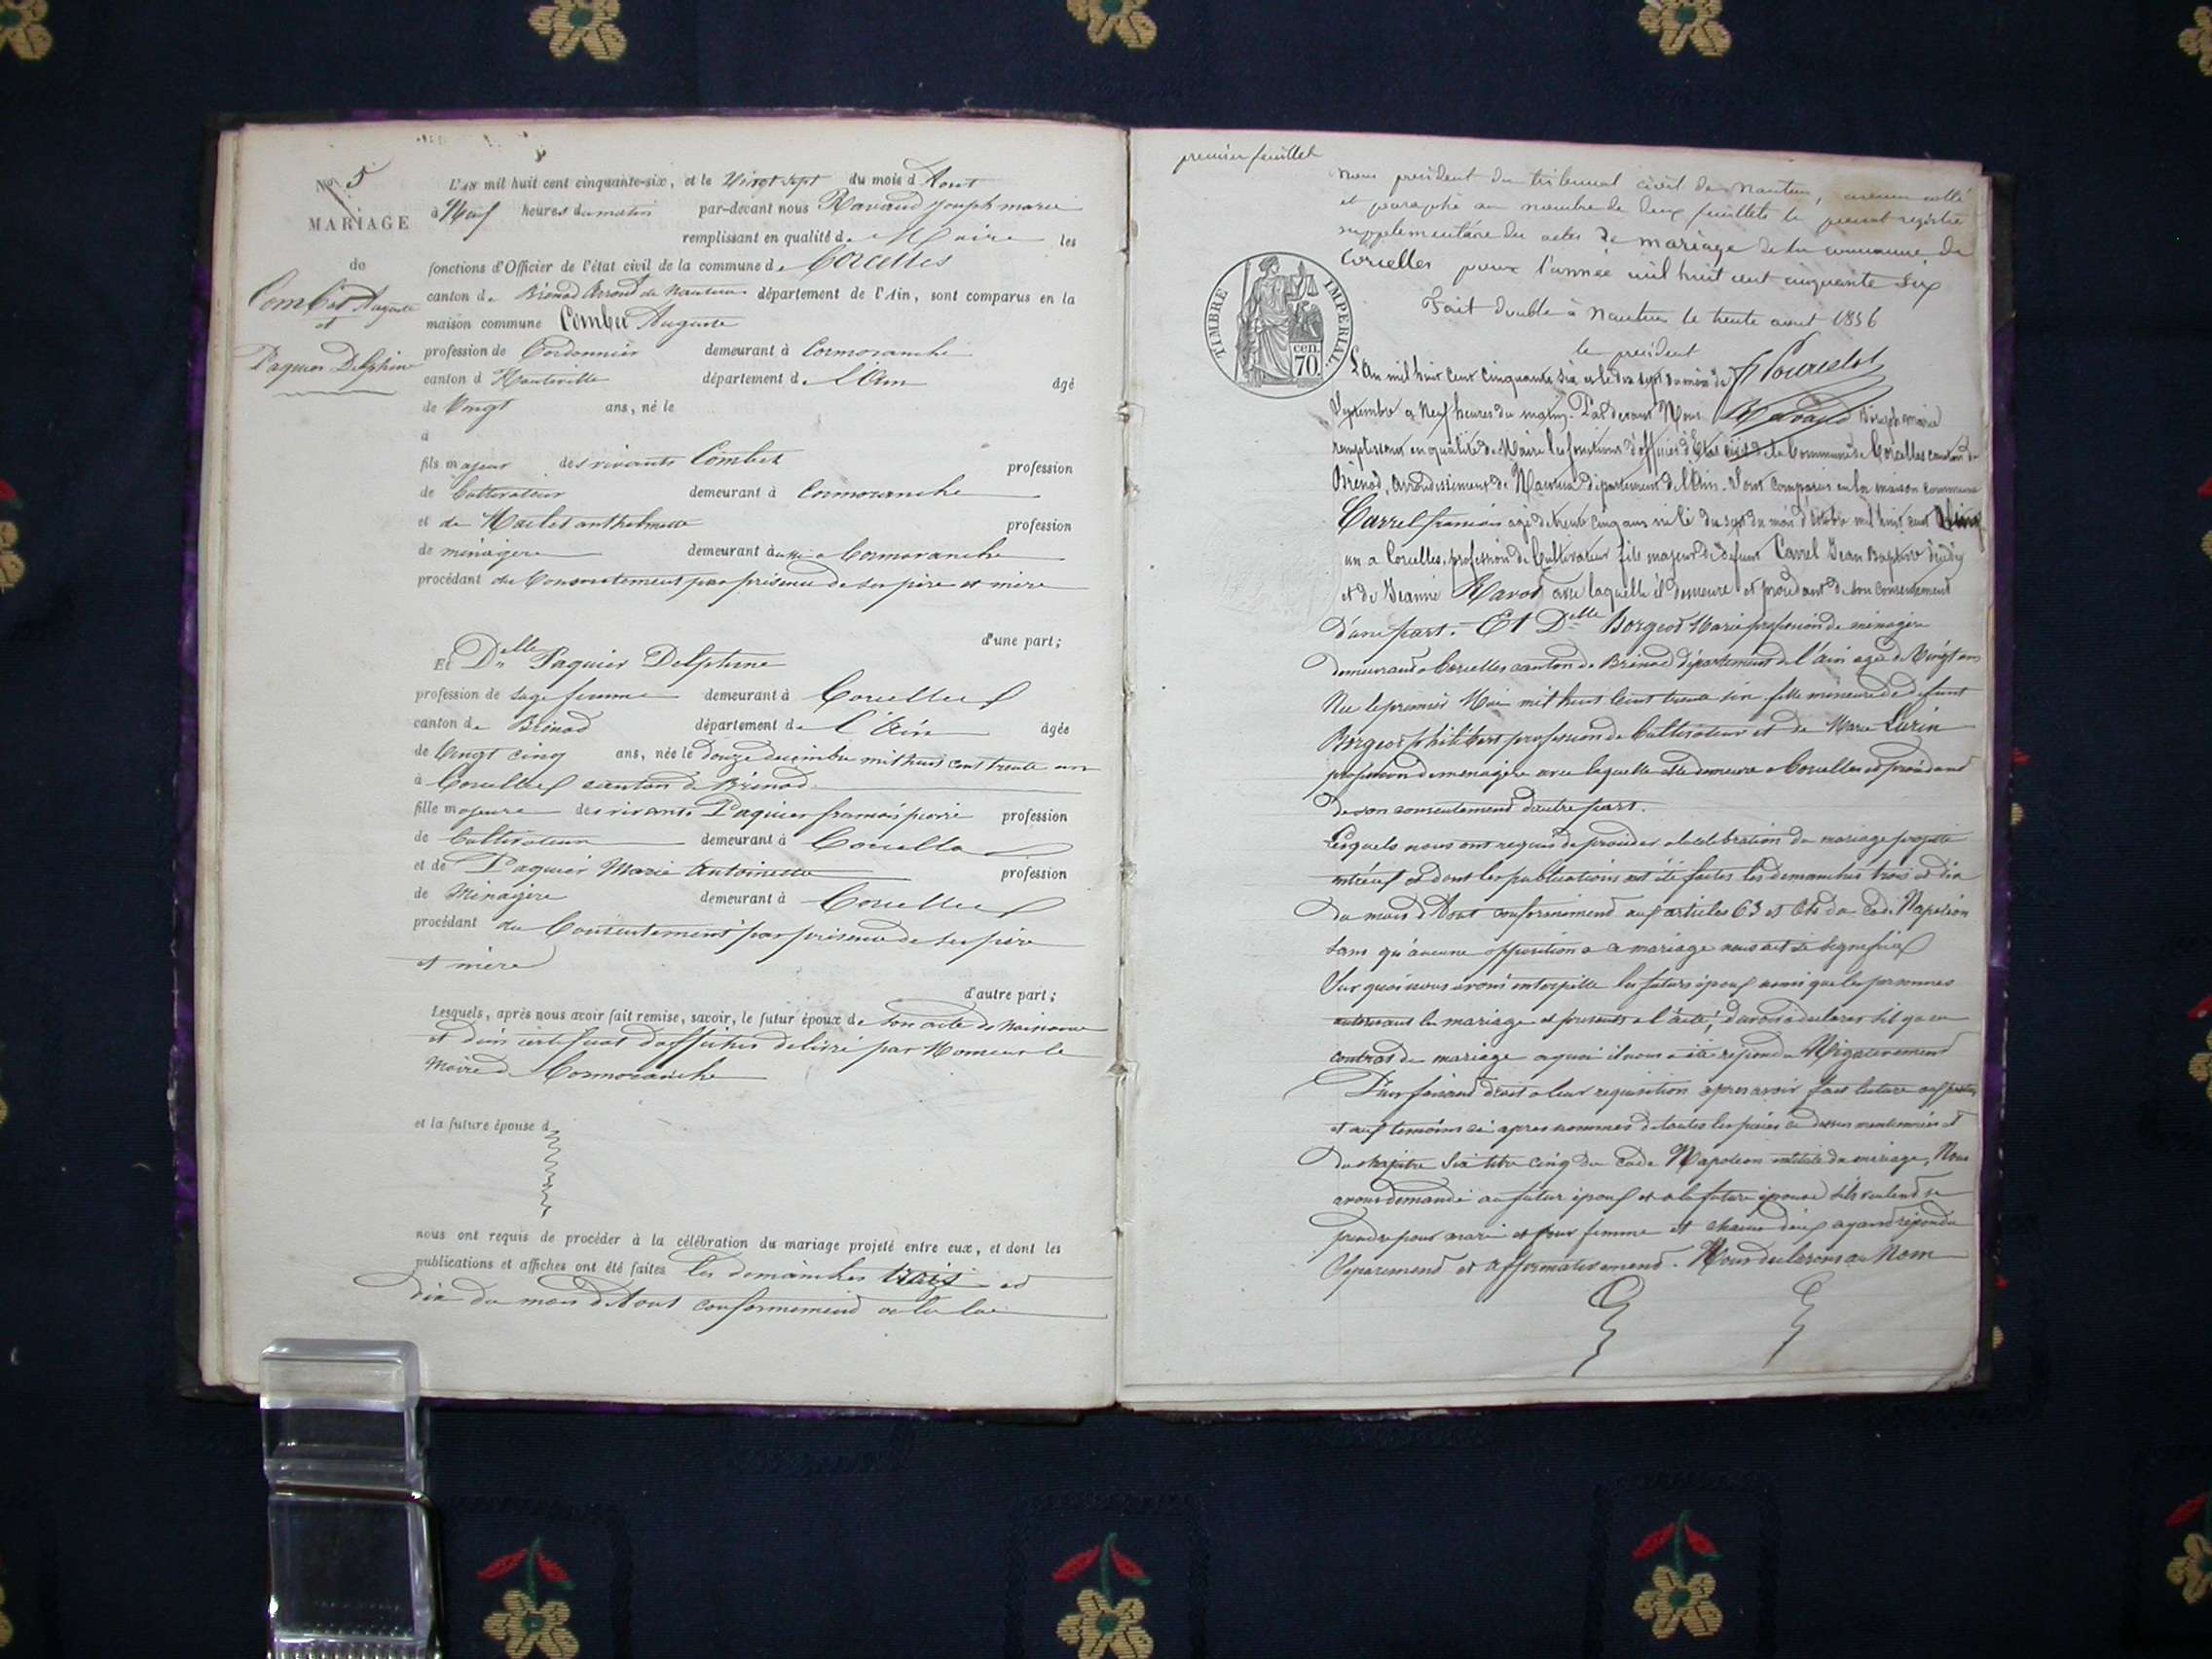 No 5
MARIAGE
de
Combet Auguste
et
Paquier Delphine
L'an mil huit cent cinquante-six, et le Vingt sept du mois d Aout
à Neuf heures du matin par-devant nous Ravaud Joseph marie
remplissant en qualité de Maire les
fonctions d'Officier de l'état civil de la commune de Corcelles
canton de Brénod Arrond de Nantua département de l'Ain, sont comparus en la
maison commune Combet Auguste
profession de Cordonnier demeurant à Cormoranche
canton d Hauteville département de L'Ain âgé
de Vingt ans, né le
à
fils majeur des vivants Combet profession
de Cultivateur demeurant à Cormoranche
et de anthelmette profession
de ménagère demeurant à Cormoranche
procédant du Consentement par présence de ses père et mère
d'une part;
Et Dlle Paquier Delphine
profession de sage femme demeurant à Corcelles
canton de Brénod département de l'Ain âgée
de Vingt cinq ans, née le douze décembre mil huit cent trente un
à Corcelles canton de Brénod
fille majeure des vivants Paquier françois pierre profession
de Cultivateur demeurant à Corcelles
et de Paquier Marie Antoinette profession
de Ménagère demeurant à Corcelles
procédant du Consentement par présence de ses père
et mère
d'autre part;
Lesquels, après nous avoir fait remise, savoir, le futur époux de son acte de naissance
et d'un certificat d'affiches délivré par Monsieur le
Maire de Cormoranche
et la future épouse d
nous ont requis de procéder à la célébration du mariage projeté entre eux, et dont les
publications et affiches ont été faites les dimanches trois et
dix du mois d'Aout conformément a la loi
premier feuillet
Nous président du tribunal civil de Nantua, avons cotté
et paraphé au nombre de deux feuillets le présent registre
supplémentaire des actes de mariage de la commune de
Corcelles pour l'année mil huit cent cinquante six
Fait double à Nantua le trente aout 1856
le président
TIMBRE IMPERIAL.
cen.
70.
L'An mil huit cent cinquante six et le dix sept du mois de
Septembre a Neuf heures du matin. Par devant Nous Ravaud Joseph marie
remplissant en qualité de Maire les fonctions d'officier d'Etat civil de la Commune de Corcelles canton de
Brénod, Arrondissement de Nantua département de l'Ain. Sont comparus en la maison commune
Carrel françois agé de trente cinq ans né le dix sept du mois d'octobre mil huit cent vingt
un a Corcelles, profession de Cultivateur fils majeur de défunt Carrel Jean Baptiste
et de Jeanne Ravot avec laquelle il demeure et procédant de son consentement
d'une part. Et Dlle Borgeot Marie profession de ménagère
demeurant a Corcelles canton de Brénod département de l'ain agée de Vingt ans
Née le premier Mai mil huit Cent trente six fille mineure de défunt
Borgeot philibert profession de Cultivateur et de Marie Lurin
profession de ménagère avec laquelle elle demeure a Corcelles et procédant
de son consentement d'autre part.
Lesquels nous ont requis de procéder a la célébration du mariage projeté
entr'eux et dont les publications ont été faites les dimanches trois et dix
du mois d'Aout conformément aux articles 63 et du Code Napoléon
sans qu'aucune opposition a ce mariage nous ait été signifiée
Sur quoi nous avons interpellé les futurs époux ainsi que les personnes
autorisant le mariage et présents a l'acte, d'avoir a déclarer s'il y a eu
contrat de mariage a quoi il nous a été répondu Négativement
Puis faisant droit a leur réquisition après avoir fait lecture aux parties
et aux témoins ci après nommés de toutes les pièces ci dessus mentionnées et
du chapitre six titre cinq du Code Napoléon intitulé du mariage, Nous
avons demandé au futur époux et a la future épouse s'ils veulent se
prendre pour mari et pour femme et chacun d'eux ayant répondu
Séparément et affirmativement. Nous déclarons au Nom